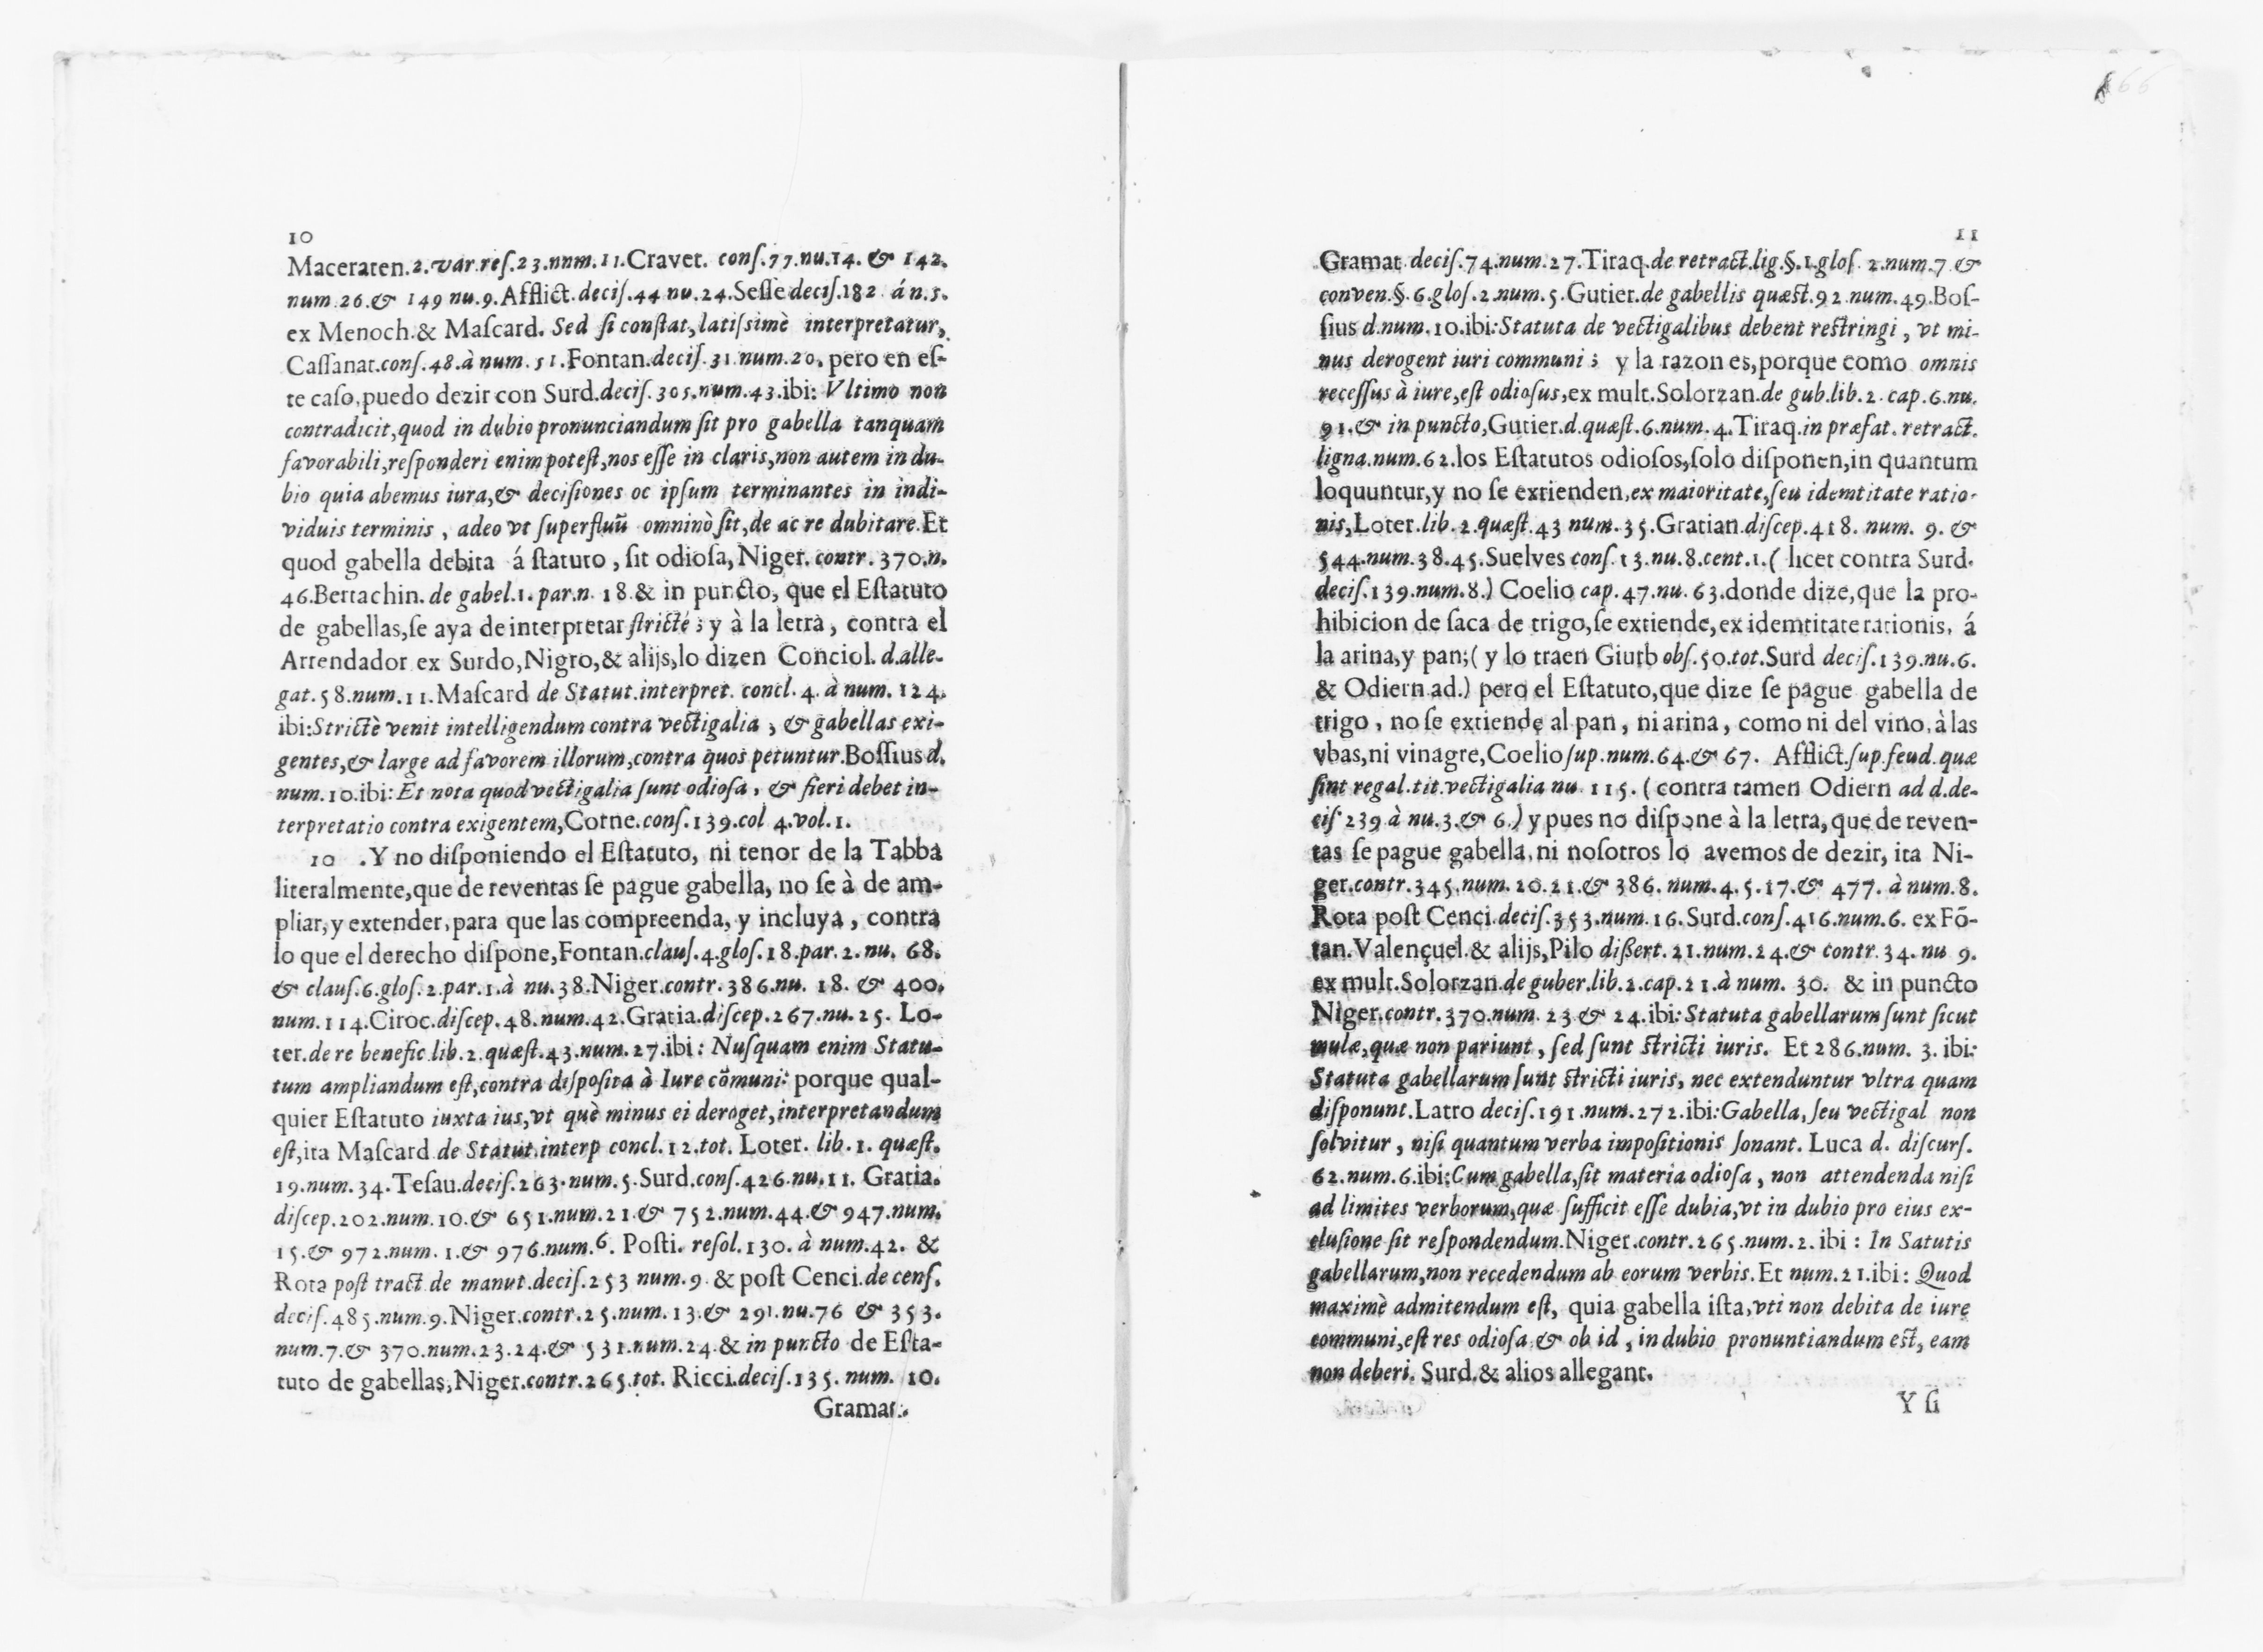 10
Maceraten.2.var.res.23.nnm.11.Cravet. conſ.77.nu.14. & 142.
num.26.& 149 nu.9.Afflict.deciſ.44 nu.24.Seſſe deciſ.182 á n.5.
ex Menoch.& Maſcard. Sed ſi conſtat,latiſsimè interpretatur,
Caſſanat.conſ.48.à num.51.Fontan.deciſ.31 num.20. pero en eſ-
te caſo,puedo dezir con Surd.deciſ.305.num.43.ibi: Vltimo non
contradicit,quod in dubio pronunciandum ſit pro gabella tanquam
favorabili,reſponderi enim poteſt,nos eſſe in claris,non autem in du-
bio quia abemus iura,& deciſiones oc ipſum terminantes in indi-
viduis terminis , adeo vt ſuperfluũ omninò ſit,de ac re dubitare.Et
quod gabella debita á ſtatuto , ſit odioſa, Niger. contr. 370.n.
46.Bertachin. de gabel.1. par.n. 18.& in puncto, que el Eſtatuto
de gabellas,ſe aya de interpretar ſtrictè ; y à la letra , contra el
Arrendador ex Surdo,Nigro,& alijs,lo dizen Conciol. d.alle-
gat.58.num.11.Maſcard de Statut.interpret. concl. 4. à num. 124.
ibi:Strictè venit intelligendum contra vectigalia , & gabellas exi-
gentes,& large ad favorem illorum,contra quos petuntur.Boſſius d.
num.10.ibi: Et nota quod vectigalia ſunt odioſa, & fieri debet in-
terpretatio contra exigentem,Corne.conſ.139.col 4.vol.1.
10 .Y no diſponiendo el Eſtatuto, ni tenor de la Tabba
literalmente,que de reventas ſe pague gabella, no ſe à de am-
pliar,y extender,para que las compreenda, y incluya , contra
lo que el derecho diſpone,Fontan.clauſ.4.gloſ.18.par.2.nu. 68.
& clauſ.6.gloſ.2.par.1.à nu.38.Niger.contr.386.nu. 18. & 400.
num.114.Ciroc.diſcep.48.num.42.Gratia.diſcep.267.nu.25. Lo-
ter.de re benefic lib.2.quæſt.43.num.27.ibi: Nuſquam enim Statu-
tum ampliandum eſt,contra diſpoſita à Iure cõmuni: porque qual-
quier Eſtatuto iuxta ius,vt què minus ei deroget,interpretandum
eſt,ita Maſcard de Statut.interp concl.12.tot. Loter. lib.1. quæſt.
19.num.34.Teſau.deciſ.263.num.5.Surd.conſ.426.nu.11. Gratia.
diſcep.202.num.10.& 651.num.21.& 752.num.44.& 947.num.
15.& 972.num. 1.& 976.num.6. Poſti. reſol.130. à num.42. &
Rota poſt tract de manut.deciſ.253 num.9 & poſt Cenci.de cenſ.
deciſ.485.num.9.Niger.contr.25.num.13.& 291.nu.76 & 353.
num.7.& 370.num.23.24.& 531.num.24.& in puncto de Eſta-
tuto de gabellas,Niger.contr.265.tot. Ricci.deciſ.135. num. 10.
Gramat.
11
Gramat deciſ.74.num.27.Tiraq.de retract.lig.§.1.gloſ. 2.num.7 &
conven.§.6.gloſ.2.num.5.Gutier.de gabellis quæst.92 num.49.Boſ-
ſius d.num.10.ibi:Statuta de vectigalibus debent reſtringi , vt mi-
nus derogent iuri communi ; y la razon es,porque como omnis
receſſus à iure,eſt odioſus,ex mult.Solorzan.de gub.lib.2. cap.6.nu.
91.& in puncto,Gutier.d.quæſt.6.num.4.Tiraq.in præfat. retract.
ligna.num.62.los Eſtatutos odioſos,ſolo diſponen,in quantum
loquuntur,y no ſe extienden,ex maioritate,ſeu idemtitate ratio-
nis,Loter.lib.2.quæſt.43 num.35.Gratian.diſcep.418. num. 9. &
544.num.38.45.Suelves conſ.13.nu.8.cent.1.( licet contra Surd.
deciſ.139.num.8.) Coelio cap.47.nu.63.donde dize,que la pro-
hibicion de ſaca de trigo,ſe extiende,ex idemtitate rationis, á
la arina,y pan;( y lo traen Giurb obſ.50.tot.Surd deciſ.139.nu.6.
& Odiern.ad.) pero el Eſtatuto,que dize ſe pague gabella de
trigo , no ſe extiende al pan , ni arina , como ni del vino, à las
vbas,ni vinagre,Coelio ſup.num.64.& 67. Afflict.ſup.feud.quæ
ſint regal.tit.vectigalia nu 115.( contra tamen Odiern ad d.de-
ciſ 239 à nu.3.& 6.) y pues no diſpone à la letra,que de reven-
tas ſe pague gabella,ni noſotros lo avemos de dezir, ita Ni-
ger.contr.345.num.20.21.& 386. num.4.5.17.& 477. à num.8.
Rota poſt Cenci.deciſ.353.num.16.Surd.conſ.416.num.6. ex Fõ-
tan.Valençuel.& alijs,Pilo dißert.21.num.24.& contr.34.nu 9.
ex mult.Solorzan.de guber.lib.2.cap.21.à num. 30. & in puncto
Niger.contr.370.num.23 & 24.ibi:Statuta gabellarum ſunt ſicut
mulæ,quæ non pariunt , ſed ſunt ſtricti iuris. Et 286.num. 3. ibi:
Statuta gabellarum ſunt ſtricti iuris, nec extenduntur vltra quam
diſponunt.Latro deciſ.191.num.272.ibi:Gabella, ſeu vectigal non
ſolvitur , niſi quantum verba impoſitionis ſonant. Luca d. diſcurſ.
62.num.6.ibi:Cum gabella,ſit materia odioſa , non attendenda niſi
ad limites verborum,quæ ſufficit eſſe dubia,vt in dubio pro eius ex-
cluſione ſit reſpondendum.Niger.contr.265.num.2. ibi : In Satutis
gabellarum,non recedendum ab eorum verbis.Et num.21.ibi: Quod
maximè admitendum eſt, quia gabella iſta,vti non debita de iure
communi,eſt res odioſa & ob id , in dubio pronuntiandum eſt, eam
non deberi. Surd.& alios allegant.
Y ſi